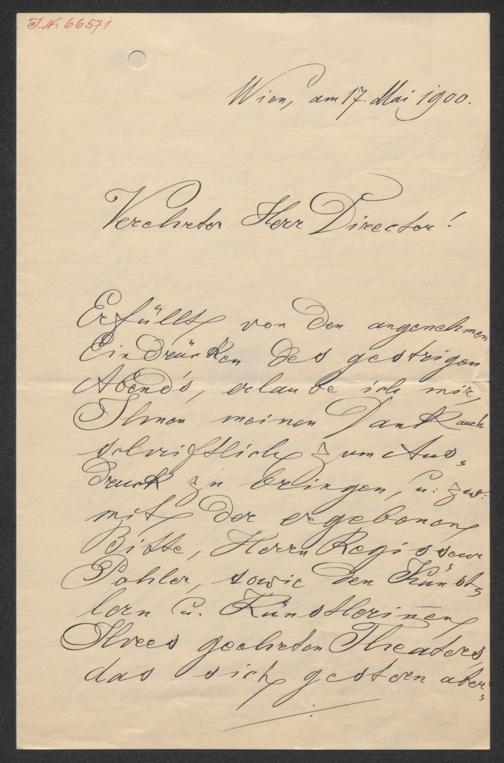 J.N. 66571
Wien, am 17. Mai 1900.
Verehrter Herr Director!
Erfüllt von den angenehmen
Eindrücken des gestrigen
Abends, erlaube ich mir,
Ihnen meinen Dank auch
schriftlich zum Aus-
druck zu bringen, u. zw.
mit der ergebenen
Bitte, Herrn Regisseur
Pohler, sowie den Künst-
lern u. Künstlerinen
Ihres geehrten Theaters,
das sich gestern aber-